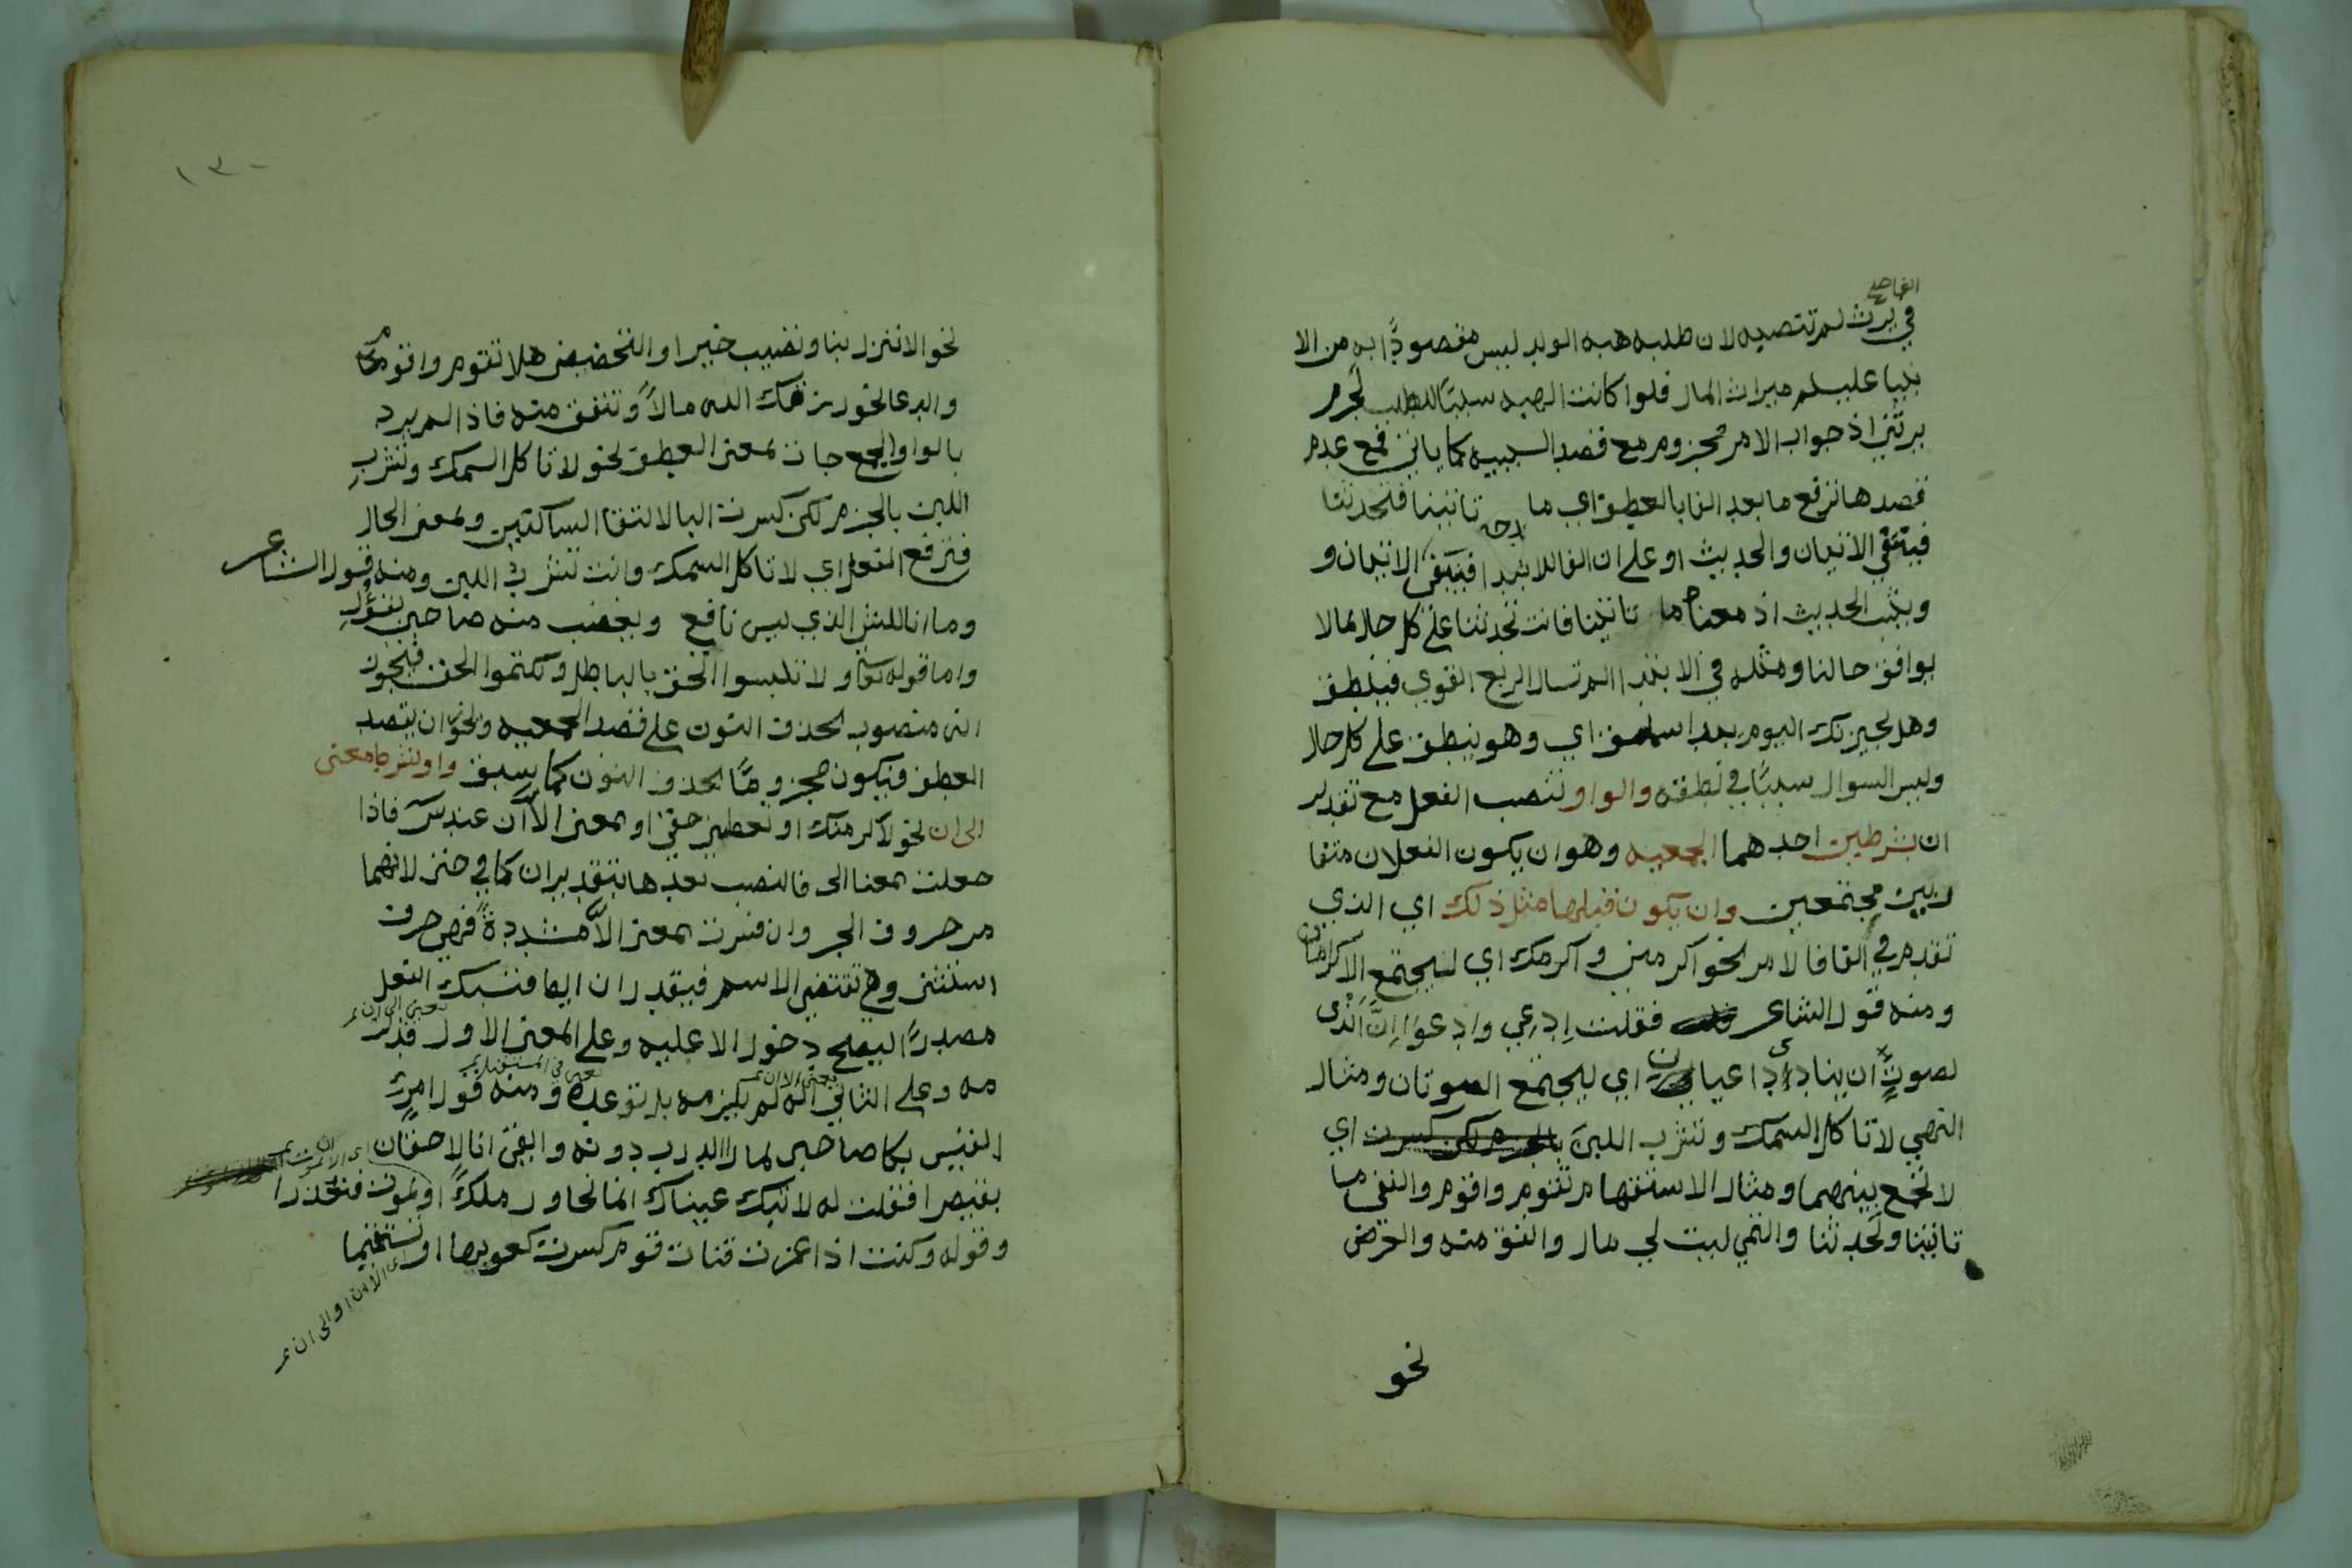 في يرث لم تنصبه لان طلبه هبه الولد ليس مقصودًا به من الا
نبيا عليهم ميراث المال فلوا كانت الهبه سببًا للطلب لجزم
يرثني اذ جواب الامر مجزوم مع قصد السببيه كما ياتي فمع عدم
قصدها ترفع ما بعد الفا بالعطف اي ما تاتينا فتحدثنا
فينتفي الاتيان والحديث او على ان الفا للابتدا فينتفي الاتيان و
ويثبت الحديث اذ معناه ما تاتينا فانت تحدثنا على كل حال بما لا
يوافق حالنا ومثله في الابتدا الم تسال الربع القوي فينطق
وهل يخبرنك اليوم بيدا سملق اي وهو ينطق على كل حال
وليس السوال سببًا في نطقه والواو تنصب الفعل مع تقدير
ان بشرطين احدهما الجمعيه وهو ان يكون الفعلان متقا
ربين مجتمعين وان يكون قبلها مثل ذلك اي الذي
تقدم في الفا فالامر نحو اكرمني واكرمك اي ليجتمع الاكرامان
ومنه قول الشاعر فقلت ادعي وادعوا ان اندى
لصوتٍ ان ينادي داعيان اي ليجتمع الصوتان ومثال
النهي لا تاكل السمك وتشرب اللبن بالجزم لكن كسرت اي
لا تجمع بينهما ومثال الاستفهام تقوم واقوم والنفي ما
تاتينا وتحدثنا والتمني ليت لي مال وانفق منه والعرض
نحو
١٣٠
نحو الا تنزل بنا وتصيب خيرا والتحضيض هلا تقوم واقوم
والدعا نحو رزقك الله مالاً وتنفق منه فاذا لم يرد
بالواو الجمع جات بمعنى العطف نحو لا تاكل السمك وتشربِ
اللبن بالجزم لكن كسرت البا لالتقا الساكنين وبمعنى الحال
فترفع الفعل اي لا تاكل السمك وانت تشرب اللبن ومنه قول الشاعر
وما انا للشي الذي ليس نافعي ويغضب منه صاحبي بقؤل
واما قوله تعالى ولا تلبسوا الحق بالباطل وتكتموا الحق فيجوز
انه منصوب بحذف النون على قصد الجمعيه ويجوز ان يقصد
العطف فيكون مجزومًا بحذف النون كما سبق واو بشرط معنى
الى ان نحو لاكرمنك او تعطيني حقي او بمعنى الا ان عند س فاذا
جعلت بمعنا الى فالنصب بعدها بتقدير ان كما في حتى لانهما
من حروف الجر وان فسرت بمعنى الاّ مشددةً فهي حرف
استثنى وهي تقتضي الاسم فيقدر ان ايضا فنسبك الفعل
مصدرًا ليصلح دخول الا عليه وعلى المعنى الاول
مه وعلى الثاني انه لم يلزمه بل توعده ومنه قول امرئ
القيس بكا صاحبي لما راا الدرب دونه وايقن انا لاحقان
بقيصرا فقلت له لا تبك عيناك انما نحاول ملكًا او نموت فنعذرا
وقوله وكنت اذا غمزت قنات قوم كسرت كعوبها او تستقيما
الا ان او الى ان